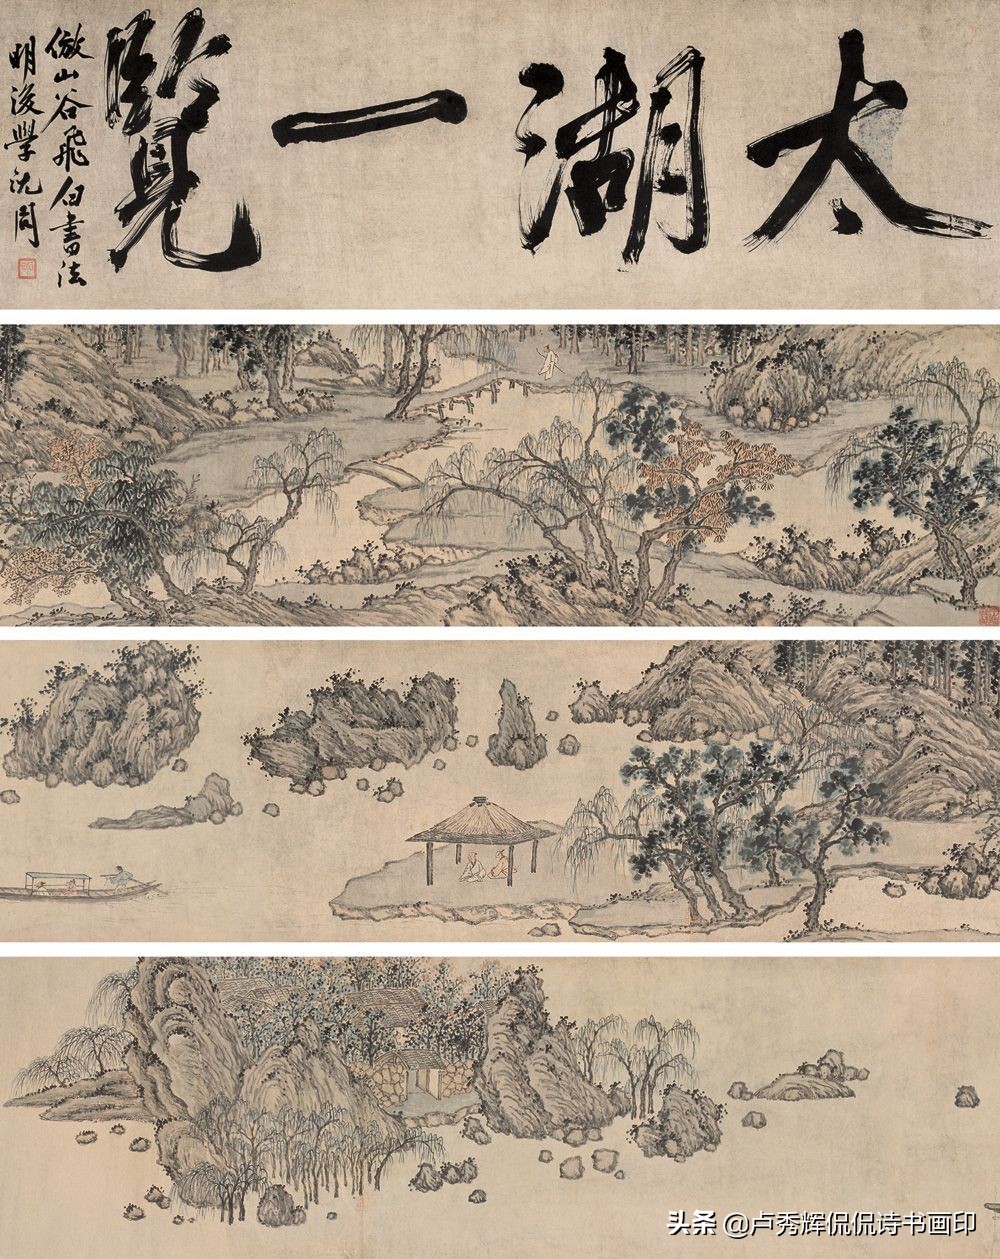 太湖一覽
倣山谷飛白書法
明後學沈周
头条 @卢秀辉侃侃诗书画印